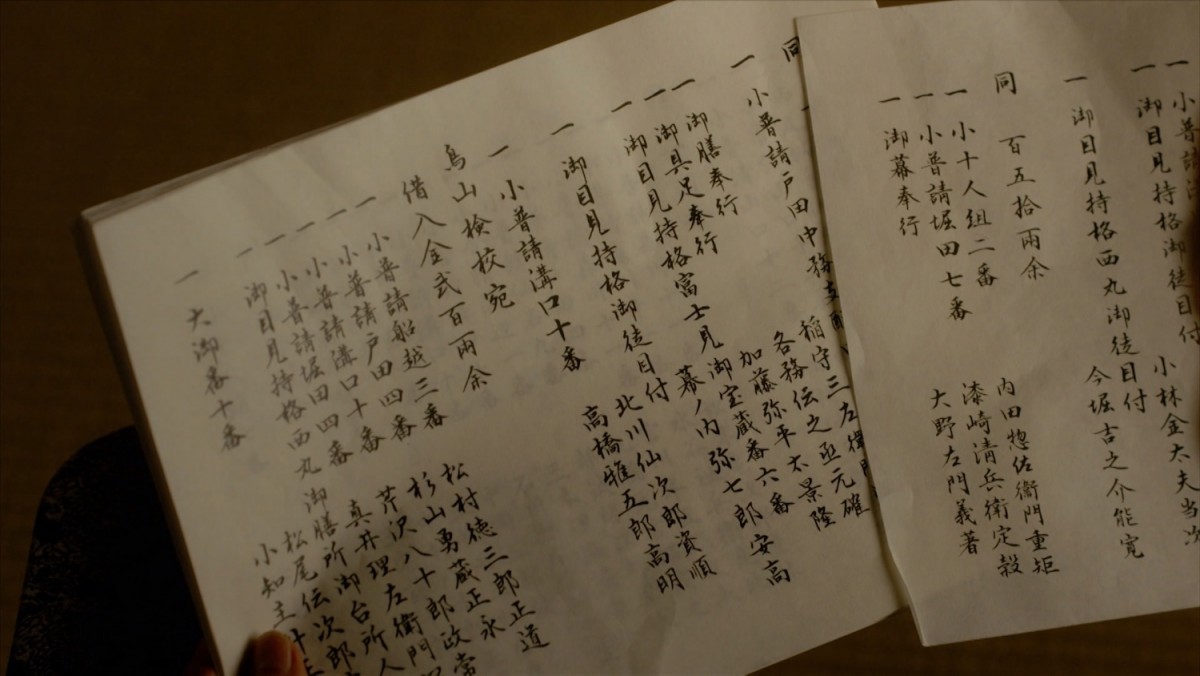 一 小普請
一 御目見持格御徒目付 小林金太夫当次
一 御目見持格西丸御徒目付 今堀吉之介能寛
同 百五拾両余
一 小十人組二番 内田惣佐衛門重矩
一 小普請堀田七番 漆崎清兵衛定穀
一 御幕奉行 大野左門義著
同
一 小普請戸田中務支配 稲守三左衛門
御膳奉行 各務伝之丞元確
一 御具足奉行 加藤弥平太景隆
一 御目見持格富士見御宝蔵番六番 幕ノ内弥七郎安高
一 御目見持格御徒目付 北川仙次郎資順
一 小普請溝口十番 高橋雅五郎高明
鳥山検校宛
借入金弐百両余
一 小普請船越三番 松村徳三郎正道
一 小普請戸田四番 杉山勇蔵正永
一 小普請溝口十番 芹沢八十郎政常
一 小普請堀田四番 真井理左衛門
一 御目見持格西丸御膳所御台所人 松尾伝次郎
一 大御番十番 小知主